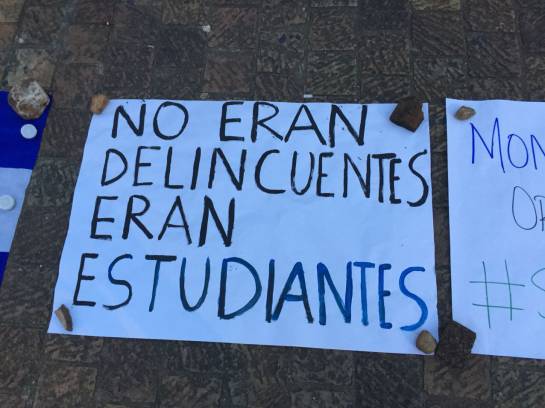 NO ERAN
DELINCUENTES
ERAN
ESTUDIANTES